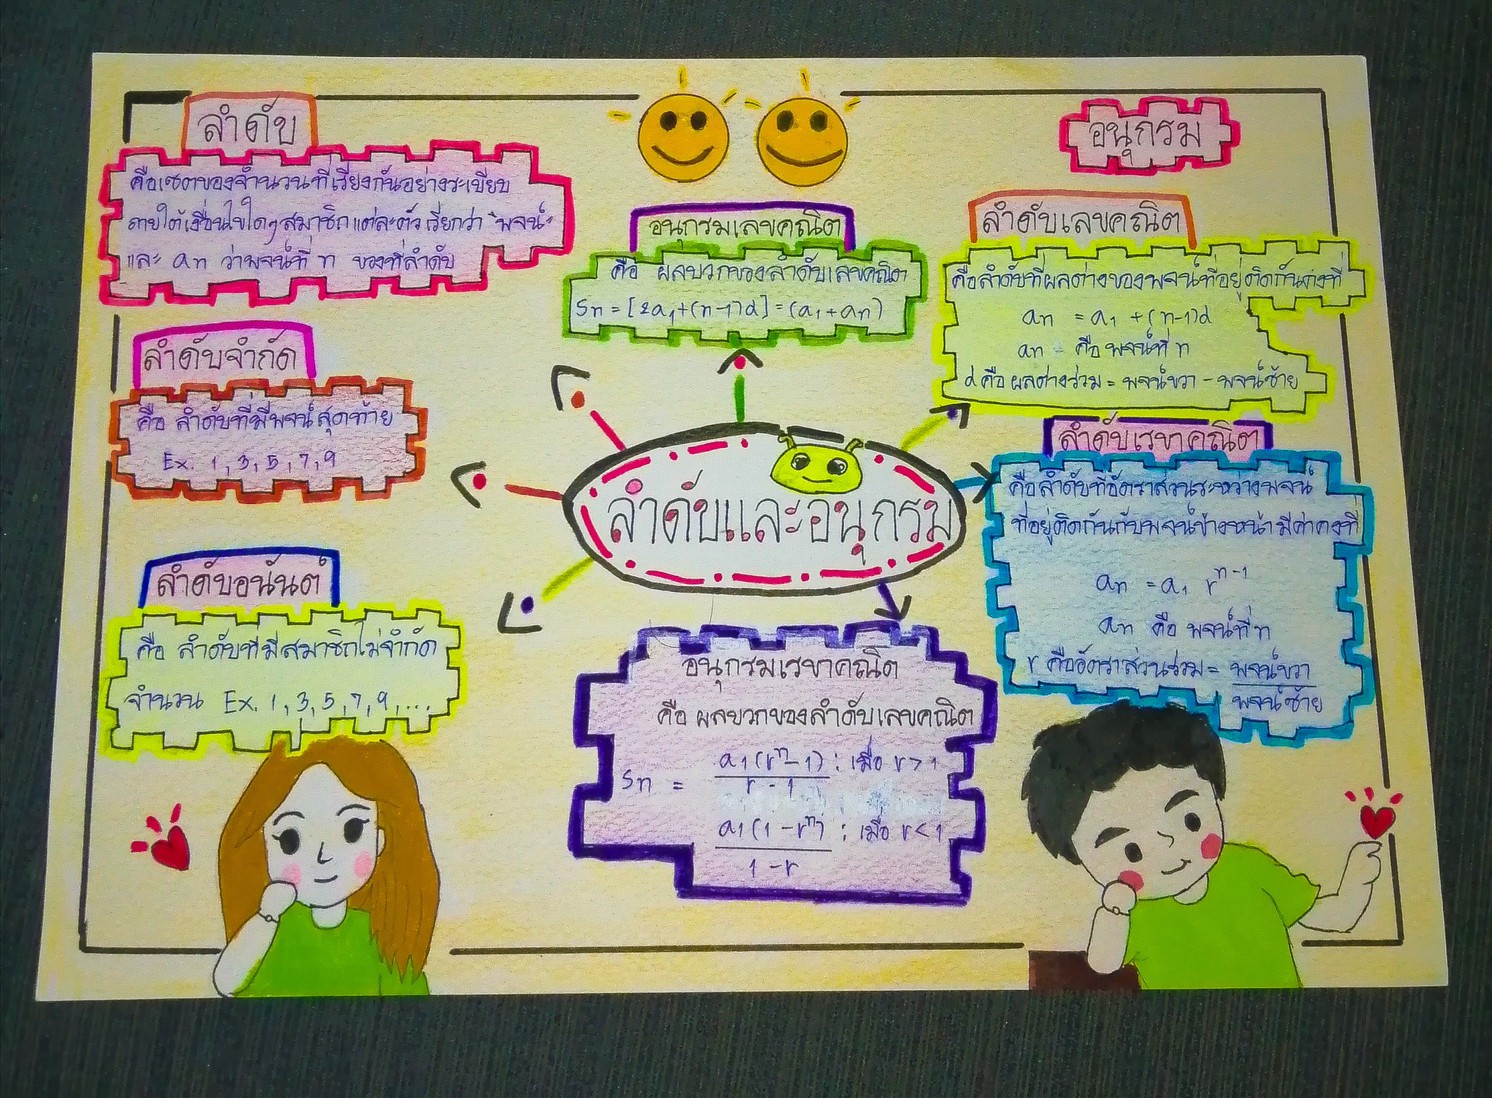 ลำดับ
คือเซตของจำนวนที่เรียงกันอย่างระเบียบ
ภายใต้เงื่อนไขใดๆ สมาชิกแต่ละตัว เรียกว่า "พจน์"
และ an ว่าพจน์ที่ n ของที่ลำดับ
ลำดับจำกัด
คือ ลำดับที่มีพจน์สุดท้าย
Ex. 1, 3, 5, 7, 9
ลำดับอนันต์
คือ ลำดับที่มีสมาชิกไม่จำกัด
จำนวน Ex. 1, 3, 5, 7, 9, ...
อนุกรมเลขคณิต
คือ ผลบวกของลำดับเลขคณิต
Sn = [2a1+(n-1)d] = (a1+an)
ลำดับและอนุกรม
อนุกรมเรขาคณิต
คือ ผลบวกของลำดับเลขคณิต
Sn = a1(rⁿ-1) : เมื่อ r > 1
r - 1
a1(1-rⁿ) : เมื่อ r < 1
1 - r
อนุกรม
ลำดับเลขคณิต
คือลำดับที่ผลต่างของพจน์ที่อยู่ติดกันคงที่
an = a1 + (n-1)d
an = คือ พจน์ที่ n
d คือ ผลต่างร่วม = พจน์ขวา - พจน์ซ้าย
ลำดับเรขาคณิต
คือลำดับที่อัตราส่วนระหว่างพจน์
ที่อยู่ติดกันกับพจน์ข้างหน้ามีค่าคงที่
an = a1 rⁿ⁻¹
an คือ พจน์ที่ n
r คืออัตราส่วนร่วม = พจน์ขวา
พจน์ซ้าย